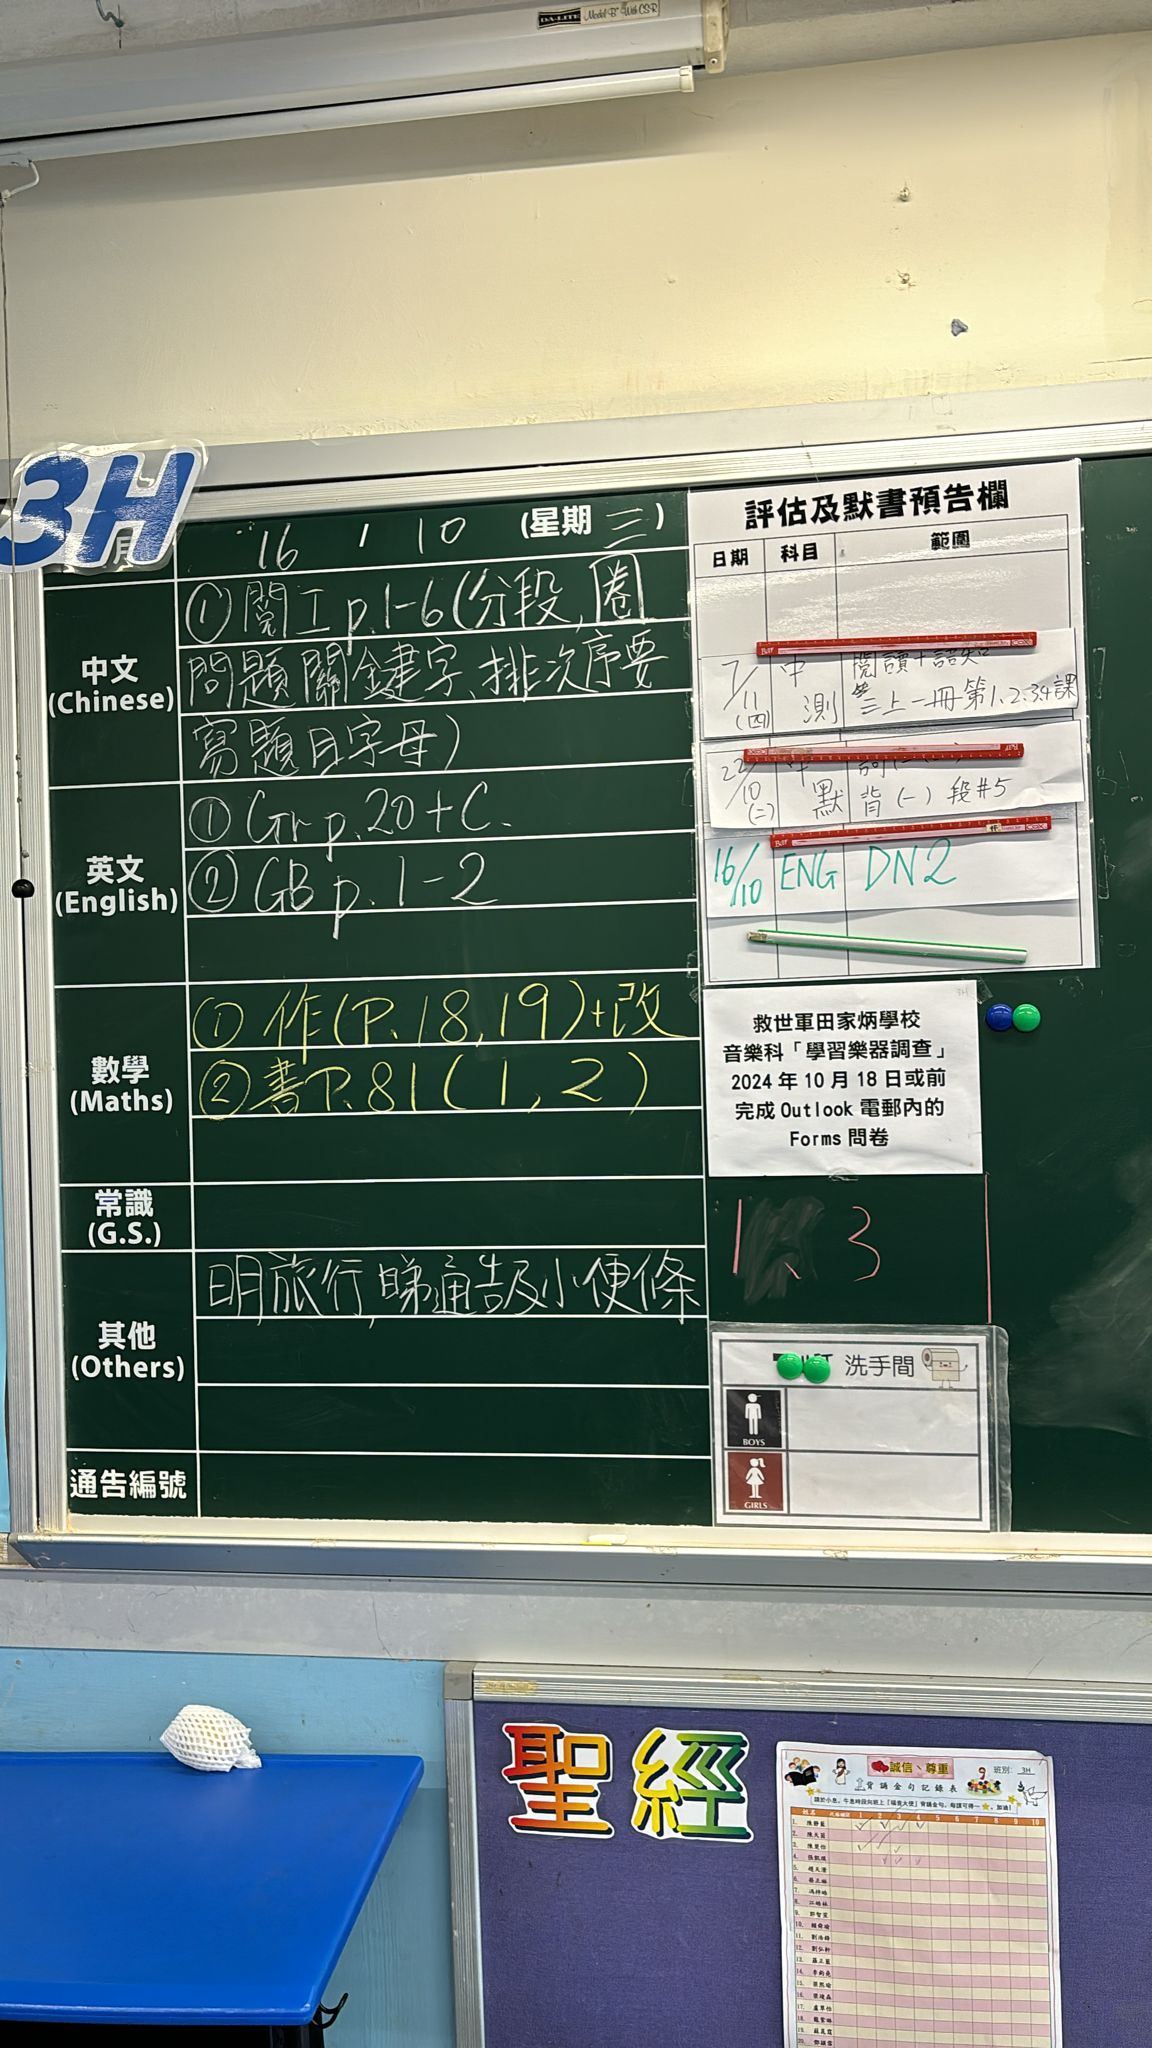 DA-LITE Model B With CSR
3H
月
16 / 10 (星期三)
中文
(Chinese)
①閱工p.1-6(分段,圈
問題關鍵字、排次序要
寫題目字母)
英文
(English)
①Gr p.20+C.
②GB p.1-2
數學
(Maths)
①作(P.18,19)+改
②書P.81(1,2)
常識
(G.S.)
其他
(Others)
明旅行,睇通告及小便條
通告編號
評估及默書預告欄
日期 科目 範圍
7/11(四) 中測 閱讀+語知
三上一冊第1.2.3.4課
22/10(二) 默
背(一)段#5
16/10 ENG DN2
3H
救世軍田家炳學校
音樂科「學習樂器調查」
2024年10月18日或前
完成Outlook電郵內的
Forms問卷
3
洗手間
BOYS
GIRLS
聖經
誠信、尊重
班別: 3H
背誦金句記錄表
姓名
1 2 3 4 5 6 7 8 9 10